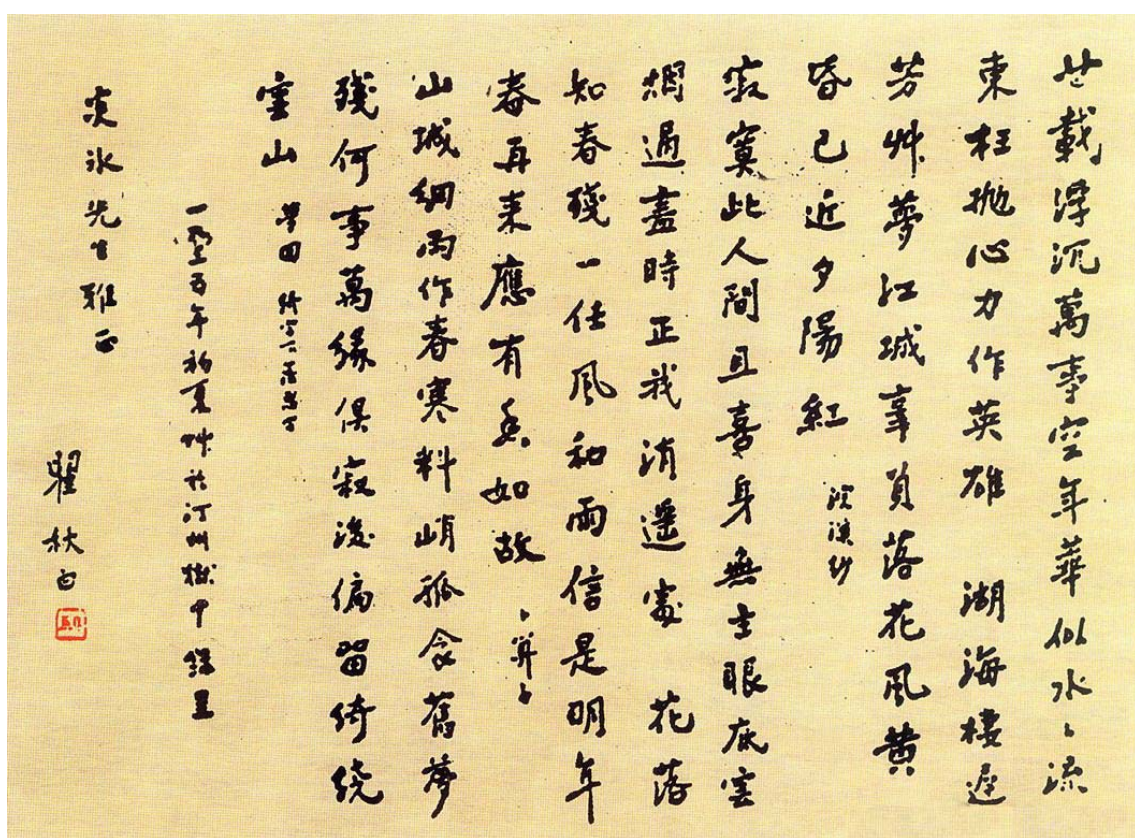 廿載浮沉萬事空年華似水〻流
東枉抛心力作英雄 湖海棲遲
芳艸夢江城辜負落花風黄
昏已近夕陽紅 浣溪紗
寂寞此人間且喜身無主眼底雲
烟過盡時正我逍遥處 花落
知春殘一任風和雨信是明年
春再来應有香如故 卜算子
山城細雨作春寒料峭孤衾舊夢
殘何事萬緣俱寂後偏留綺繞
雲山 夢回
一九三五年初夏 於汀州獄中 錄呈
炎冰先生雅正 瞿秋白